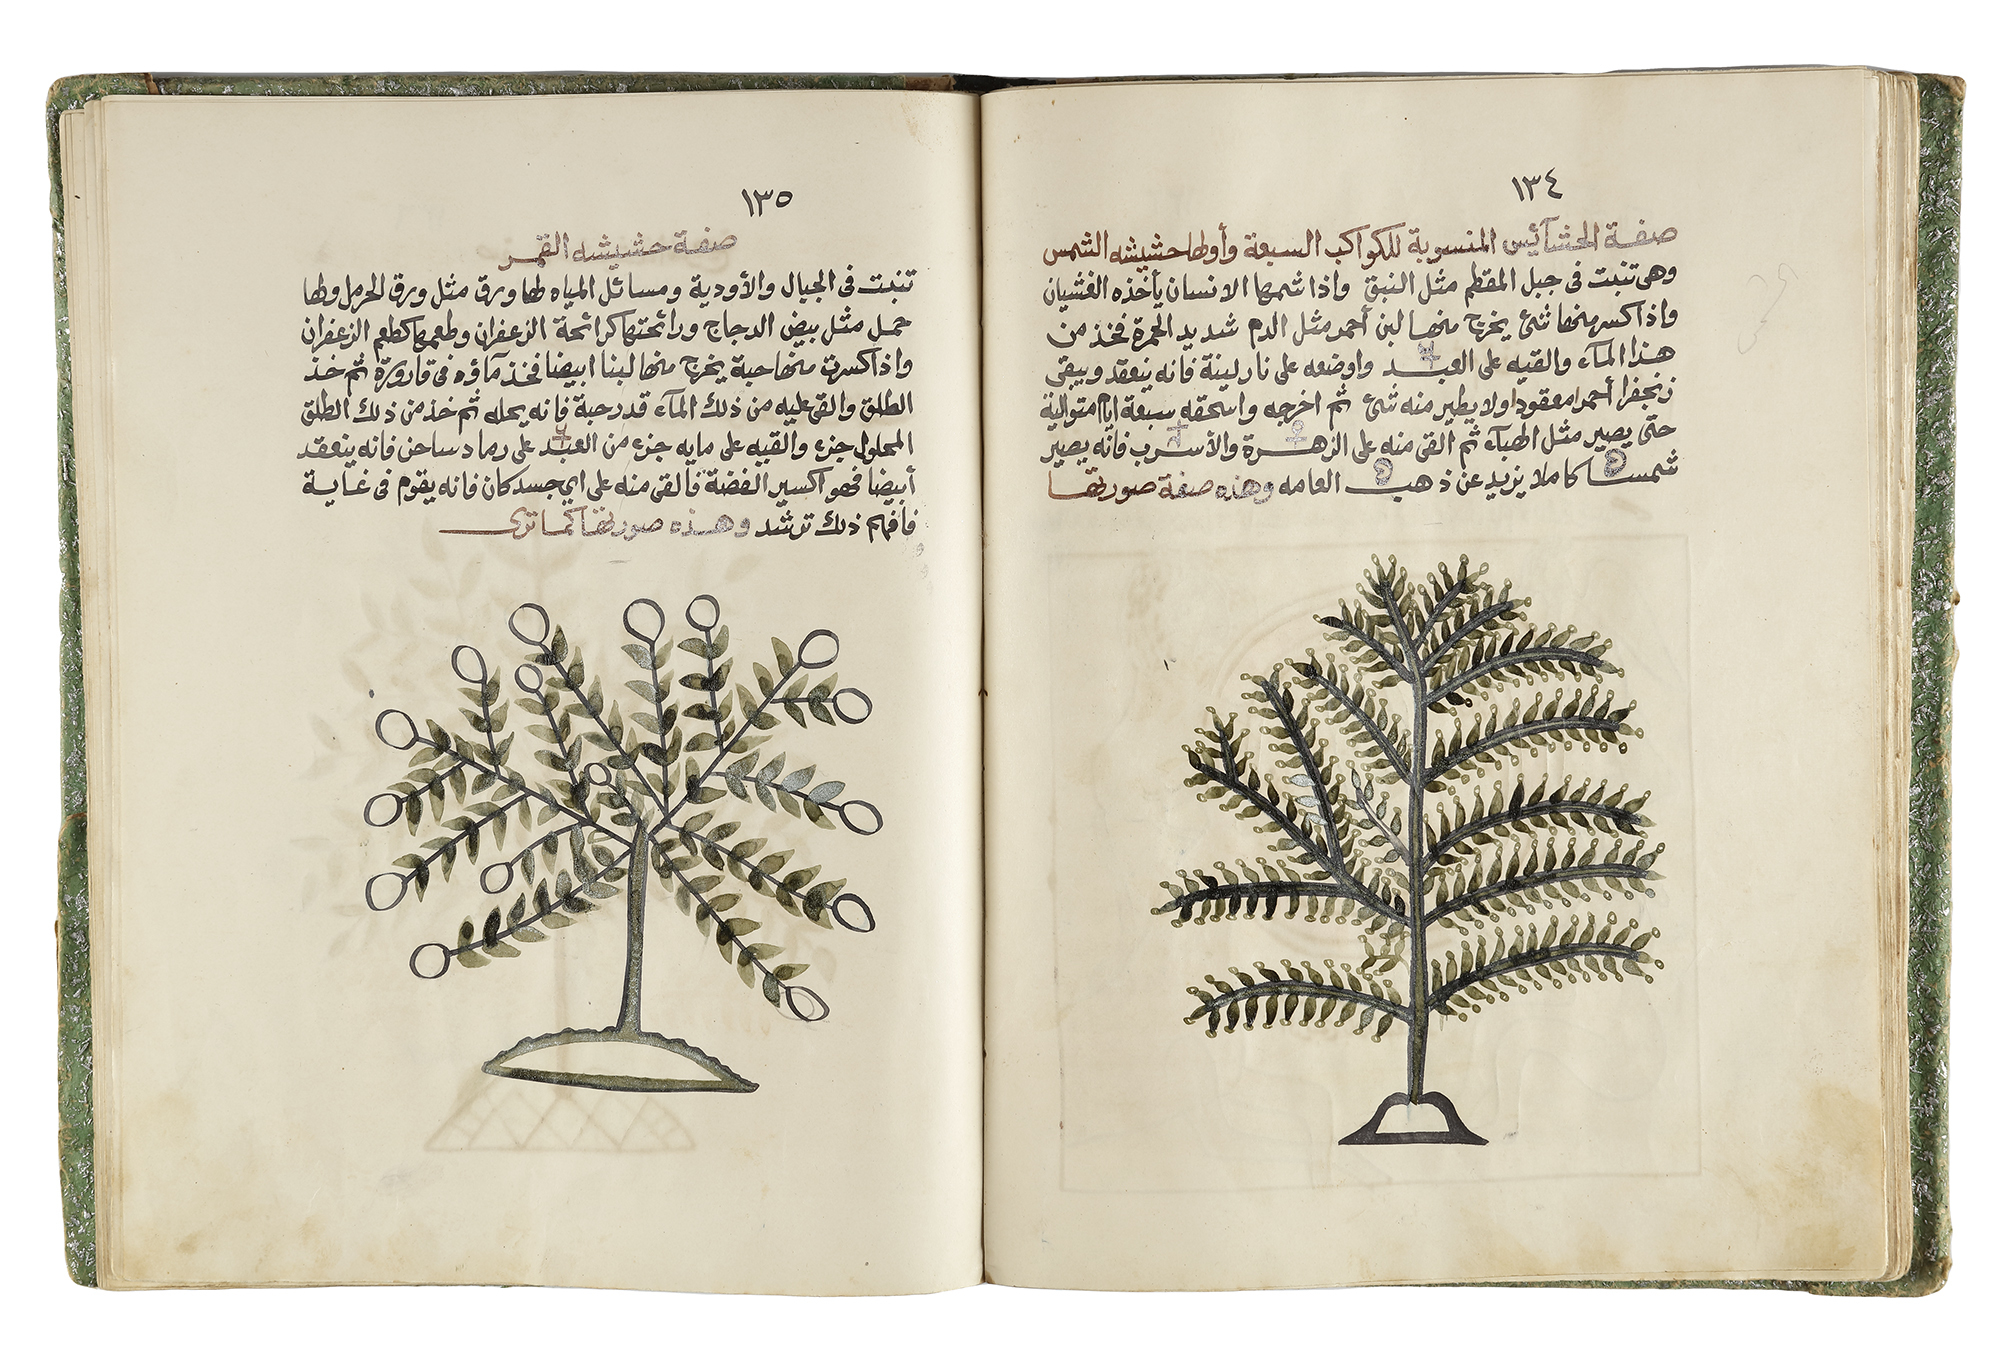 ١٣٤
صفة الحشآئيس المنسوبة للكواكب السبعة وأولها حشيشه الشمس
وهى تنبت فى جبل المقطم مثل النبق واذا شمها الانسان يأخذه الغشيان
واذا كسر منها شئ يخرج منها لبن أحمر مثل الدم شديد الحمرة فخذ من
هذا المآء والقيه على العبد واوضعه على نار لينة فانه ينعقد ويبقى
زنجفرا أحمرا معقودا ولا يطير منه شئ ثم اخرجه واسحقه سبعة ايام متوالية
حتى يصير مثل الهبآء ثم القى منه على الزهرة والأسرب فانه يصير
شمسا كاملا يزيد عن ذهب العامه وهذه صفة صورتها
١٣٥
صفة حشيشه القمر
تنبت فى الجبال والأودية ومسائل المياه لها ورق مثل ورق الحرمل ولها
حمل مثل بيض الدجاج ورائحتها كرائحة الزعفران وطعمها كطعم الزعفران
واذا كسرت منها حبة يخرج منها لبنا ابيضا فخذ مآؤه فى قارورة ثم خذ
الطلق والقى عليه من ذلك المآء قدر حبة فانه يحله ثم خذ من ذلك الطلق
المحلول جزء والقيه على مايه جزء من العبد على رماد ساخن فانه ينعقد
أبيضا فهو اكسير الفضة فألقى منه على اي جسد كان فانه يقوم فى غاية
فأفهم ذلك ترشد وهذه صورتها كما ترى